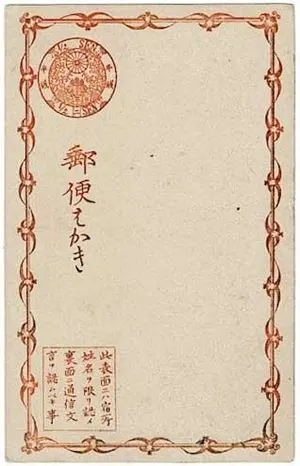 SEN
郵便はかき
此表面ニハ宿所
姓名ヲ限リ認メ
裏面ニ通信文
言ヲ認ムヘキ事